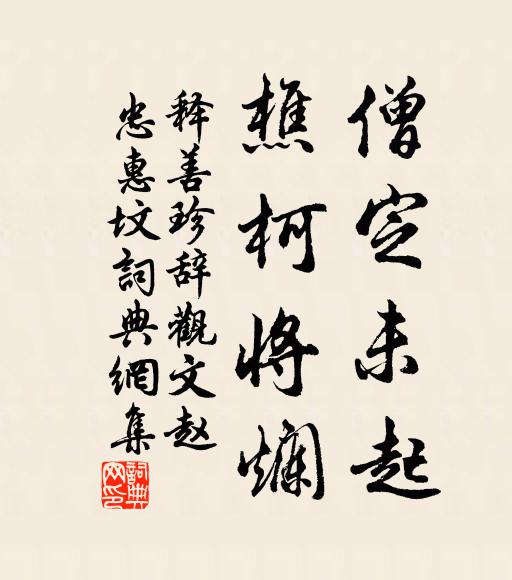 僧定未起
樵柯将爛
释善珍辞觀文赵
忠惠坟詞典網集
詞典网印